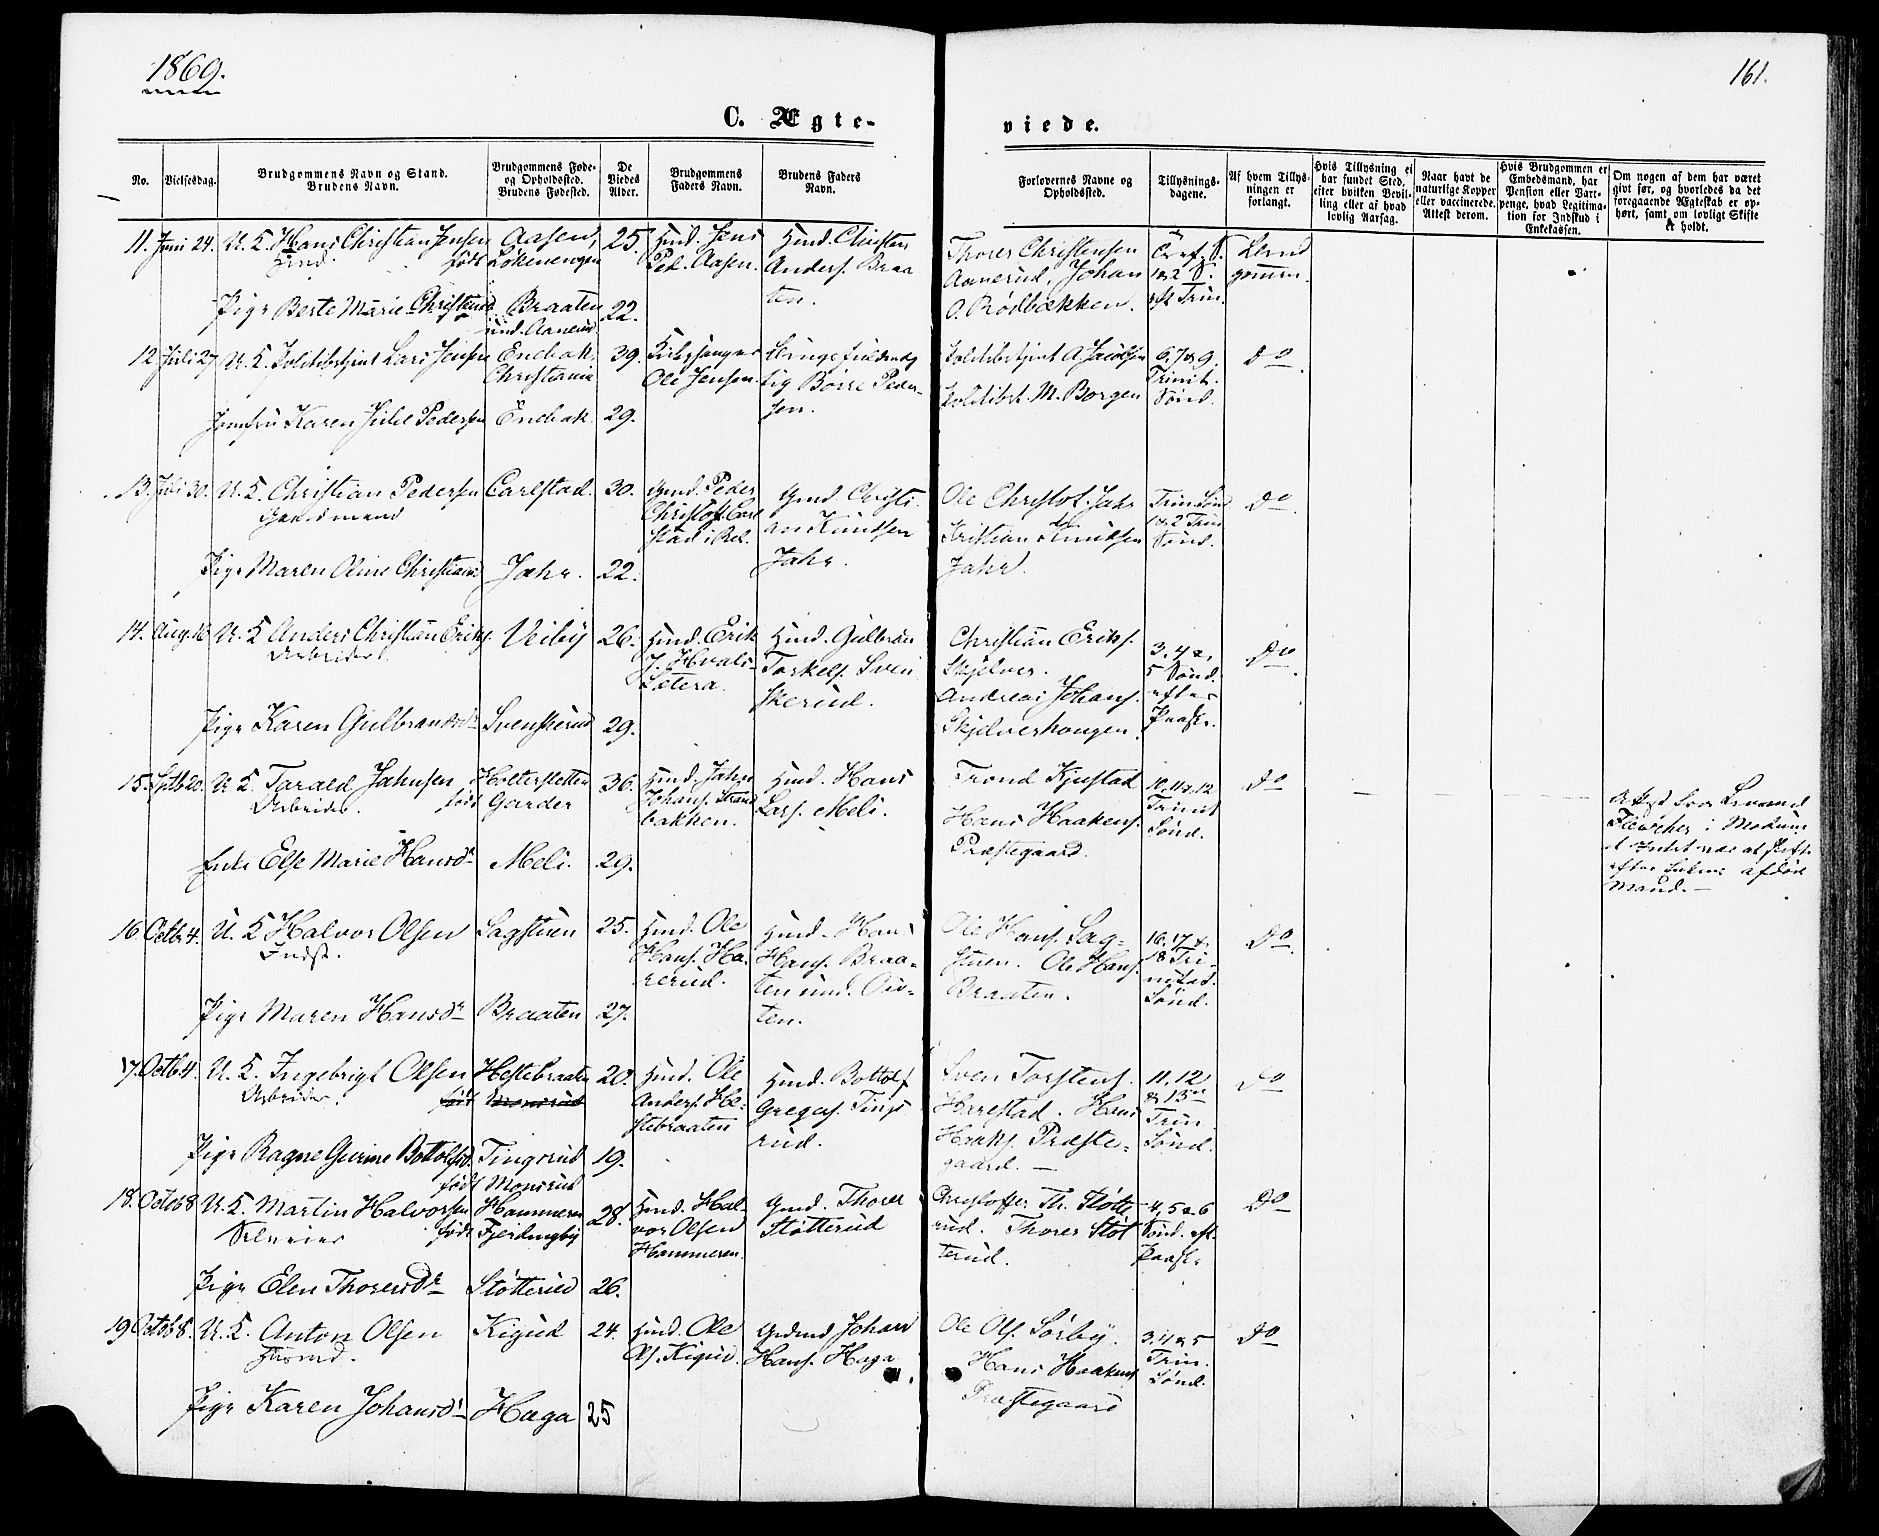 1869.
161.
C. Ægte-
viede.
No.
Vielsesdag.
Brudgommens Navn og Stand.
Brudens Navn.
Brudgommens Føde-
og Opholdssted.
Brudens Fødested.
De
Viedes
Alder.
Brudgommens
Faders Navn.
Brudens Faders
Navn.
Forlovernes Navne og
Opholdssted.
Tillysnings-
dagene.
Af hvem Tillys-
ningen er
forlangt.
Hvis Tillysning ei
har fundet Sted,
efter hvilken Bevil-
ling eller af hvad
lovlig Aarsag.
Naar havt de
naturlige Kopper
eller vaccinerede.
Attest derom.
Hvis Brudgommen er
Embedsmand, har
Pension eller Var-
penge, hvad Legitima-
tion for Indskud i
Enkekassen.
Om nogen af dem har været
gift før, og hvorledes da det
foregaaende Ægteskab er op-
hørt, samt om lovligt Skifte
er holdt.
11. Juni 24. U. K. Hans Christian Jensen
født
Aasen,
Lökenengen
25.
Hmd. Jens
Ped. Aasen.
Hmd. Christen
Anders. Braa
ten.
Thorer Christensen
Aanerud, Johan
O. Rödbækken.
1 & 2 S.
Trin.
Brud
gommen.
Pige Berte Marie Christensd.
Braaten
und. Aanerud
22.
12. Juli 27. U. K. Politibetjent Lars Jensen
Enebak,
Christiania
39.
Kirkesanger
Ole Jensen.
Börre Peder-
sen.
Politibetjent A. Jacobsen
Politibet. M. Borgen
6, 7 & 9,
Trinit.
Sönd.
Do
Jomfru Karen Julie Pedersen
Enebak.
29.
13. Juli 30. U. K. Christian Pedersen
Gaardmand
Carlstad.
30.
Gmd. Peder
Christoff. Carl
stad
Gmd. Christi
an Knudsen
Jahr.
Ole Christof. Jahr
Kristian Knudsen
Jahr.
Trin. Sönd
1 & 2 Trin
Sönd.
Do
Pige Maren Oline Christiansd
Jahr.
22.
14. Aug. 16 U. K. Anders Christian Eriks.
Arbeider.
Veiby
26.
Hmd. Erik
J. Hvals-
Sætera.
Hmd. Gulbran
Torkels. Sven
skerud.
Christian Eriks.
Skjelver.
Andreas Johans.
Skjelverhaugen.
3, 4 &
5 Sönd.
efter
Paaske.
Do
Pige Karen Gulbransdr
Svenskerud
29.
15. Septb 20. U. K. Tarald Jahnsen
Arbeider.
født
Holtersletten
Garder
36.
Hmd. Jahn
Johans. Strand
bakken.
Hmd. Hans
Lars. Meli.
Trond Kjustad
Hans Haakens.
Præstegaard.
10, 11 & 12
Trinit
Sönd.
Do
Enke Else Marie Hansdr
Meli.
29.
i Modum
Intet var at skifte
efter hendes afdöde
Mand.
16. Octb 4. U. K. Halvor Olsen
Indst.
Sagstuen
25.
Hmd. Ole
Hans. Ha-
rerud.
Hmd. Hans
Hans. Braa-
ten und.
ten.
Ole Hans. Sag-
stuen. Ole Hans.
Braaten.
16, 17 &
18 Tri-
nitat.
Sönd.
Do
Pige Maren Hansdr
Braaten
27.
17. Octb 4. U. K. Ingebrigt Olsen
Arbeider.
født
Hestebraaten
Monsrud
20.
Hmd. Ole
Anders. He-
stebraaten
Hmd. Bottolf
Gregers. Tings
rud.
Sven Torstens.
Harestad. Hans
Haak. Præste-
gaard.
11, 12
& 13de
Trin.
Sönd.
Do
Pige Ragne Gurine Bottolfsd.
født
Tingsrud
Monsrud
19.
18. Octob 8 U. K. Martin Halvorsen
Selveier
født
Hammeren
Fjerdingby
28.
Hmd. Hal-
vor Olsen
Hammeren.
Gmd. Thorer
Støtterud
Christoffer Th. Støtte
rud. Thorer Støt
terud.
4, 5 & 6
Sönd. ef.
Paaske
Do
Pige Elen Thorersdr
Støtterud
26.
19 Octob 8. U. K. Anton Olsen
Husmd.
Kigud
24.
Hmd. Ole
Ol. Kigud.
Grdmd Johan
Hans. Haga
Ole Ols. Sörby.
Hans Haakens
Præstegaard
3, 4 & 5
Trin.
Sönd.
Do
Pige Karen Johansdr
Haga
25